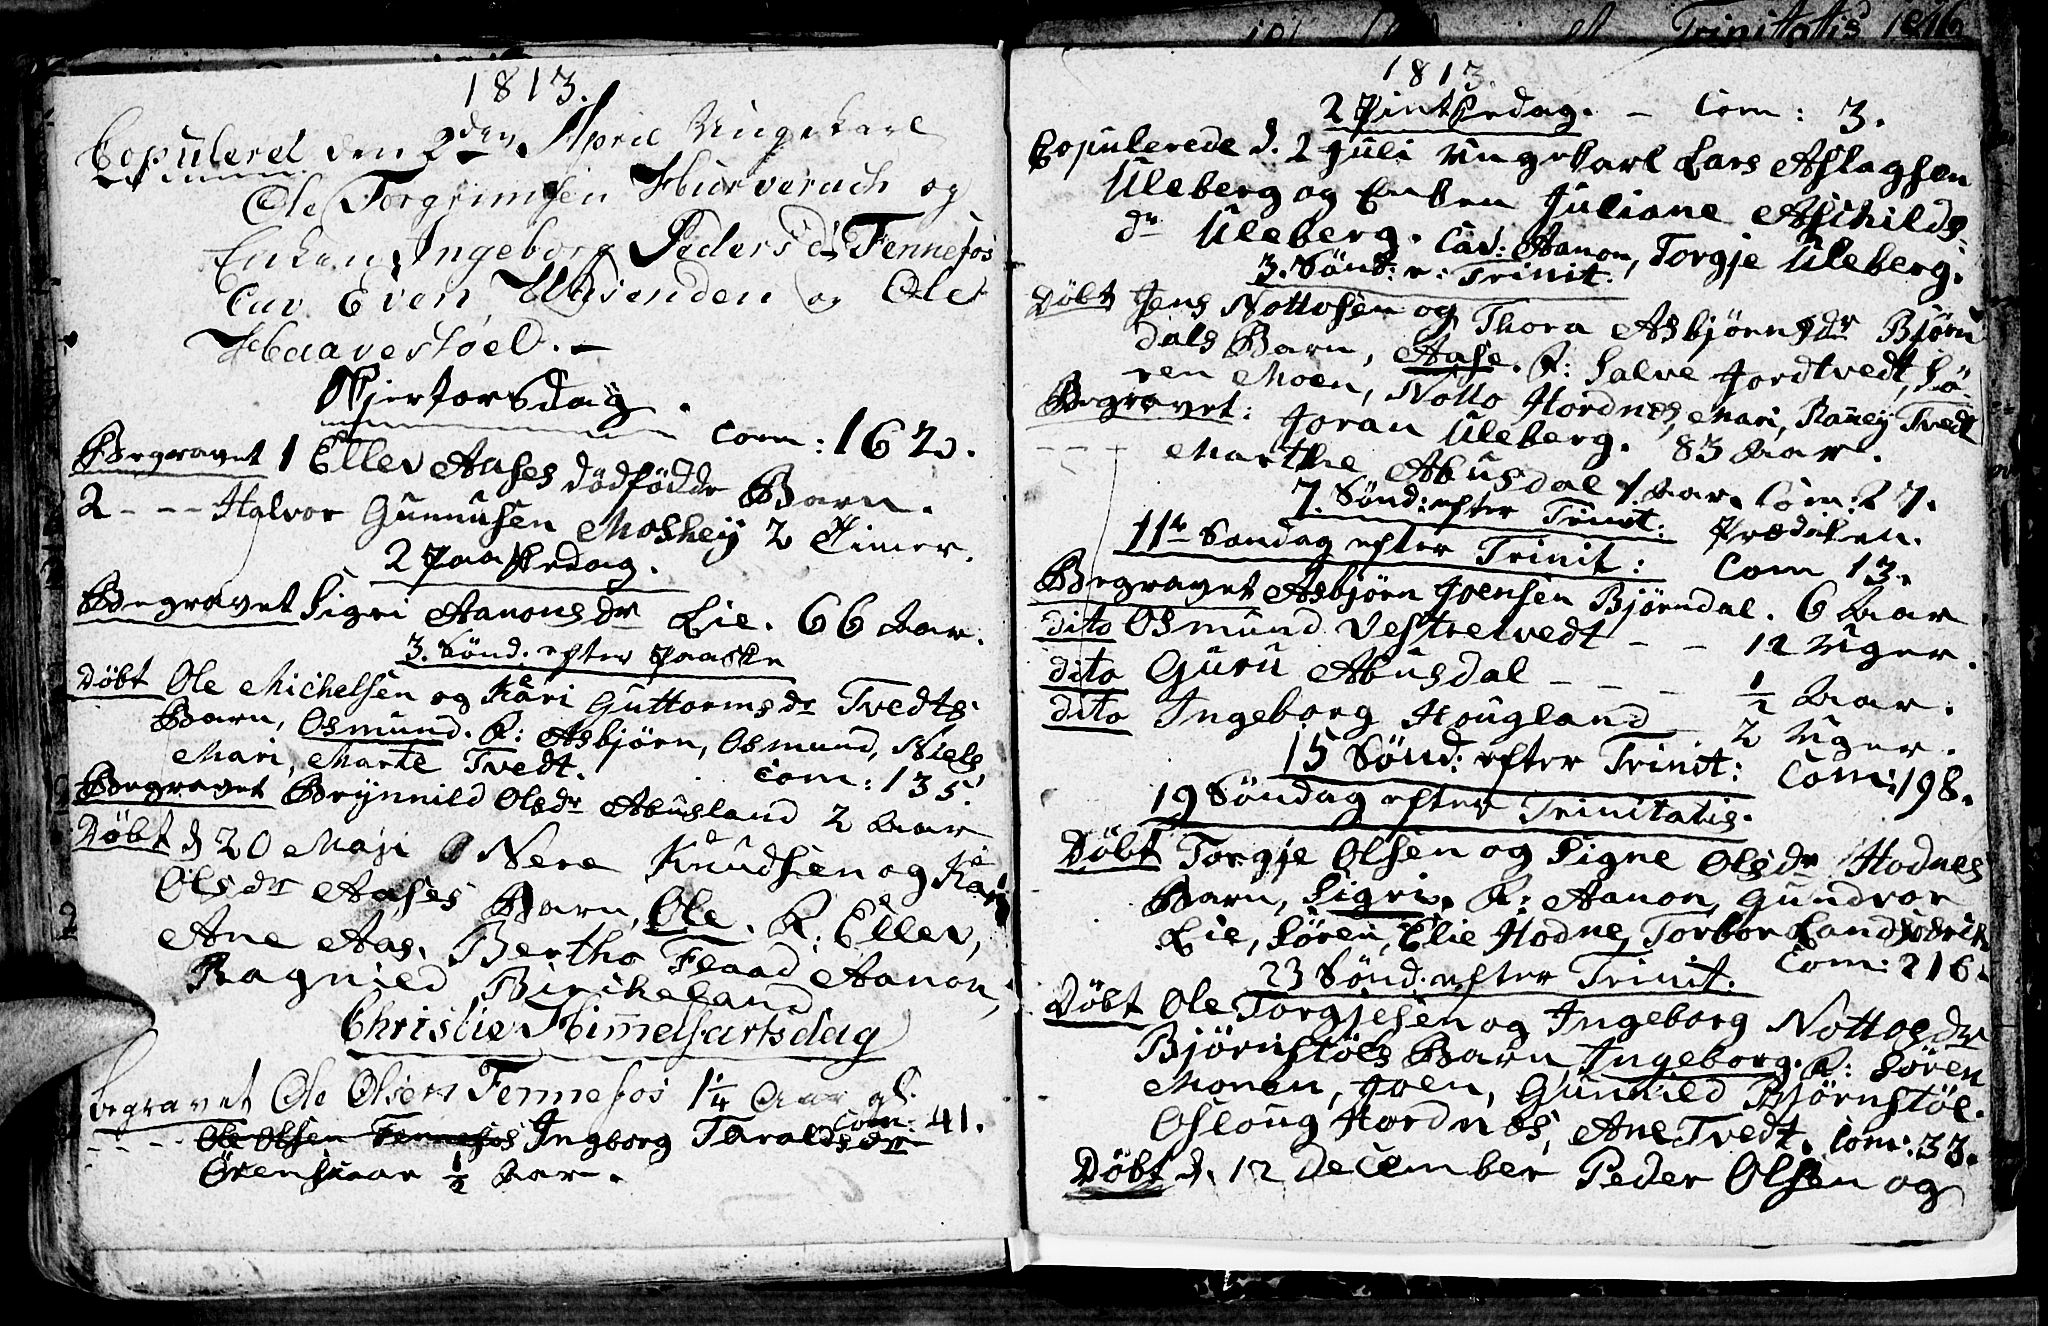 1813.
Copuleret den 2den April Ungekarl
Ole Torgrimsen Hurverack og
Enken Ingeborg Peders dr Fennefos
Cav Even Uldsenden og Ole
Haavestøel. —
Skjertorsdag.
com: 162.
Begravet 1 Ellev Aases dødfødde Barn.
2 - - - Halvor Gunnusen Moshey 2 Timer.
2 Paaskedag.
Begravet Sigri Aanonsdr Lie. 66 Aar.
3. Sønd. efter Paaske
Døbt Ole Michelsen og Kari Guttormsdr Tvedts
Barn, Osmund. F: Asbjørn, Osmund, Niels,
Mari, Marte Tvedt. Com: 135.
Begravet Brynnild Olsdr Abusland 2 Aar
Døbt d 20 Maji Nere Knudsen og Kari
Olsdr Aases Barn, Ole. F: Ellev,
Ane Aas, Bertho Flaad Aanon,
Ragnild Bircheland
Christie Himmelfartsdag
Begravet Ole Olsen Fennefos 1 1/4 Aar gl.
Com: 41.
- - - Ole Olsen Fennefos Ingborg Taraldsdr
Øvenskaar 1/2 Aar.
Trinitatis 1816
1813.
2 Pintsedag. - Com: 3.
Copulerede d. 2 Juli Ungekarl Lars Aslagsen
Uleberg og Enken Juliane Aschilds-
dr Uleberg. Cav: Aanon, Torgje Uleberg.
3. Sønd: e: Trinit.
Døbt Jens Nottosen og Thora Asbjørnsdr Bjørn
dals Barn, Aase. F: Salve Jordtvedt, Sø-
ren Moen, Notto Hordnes, Mari, Raney Tvedt
Begravet: Joran Uleberg. 83 Aar.
- - - Marthe Abusdal 1 Aar. Com: 27.
7. Sønd: efter Trinit: Prædiken.
11te Søndag efter Trinit: Com 13.
Begravet Asbjørn Joensen Bjørndal. 6 Aar
dito Osmund Vestreivedt - - 12 Uger.
dito Guru Abusdal - - - 1/2 Aar.
dito Ingeborg Hougland 2 Uger.
15 Sønd: efter Trinit: Com: 198.
19 Søndag efter Trinitatis.
Døbt Torgje Olsen og Signe Olsdr Hodnes
Barn, Sigri. F: Aanon, Gundvor
Lie, Søren, Elie Hodne, Torbor
Com: 216.
23 Sønd: efter Trinit.
Døbt Ole Torgjesen og Ingeborg Nottosdr
Bjørnstøls Barn Ingeborg. F: Søren
Monen, Joen, Gunnild Bjørnstøl.
Osloug Hordnes, Ane Tvedt. Com: 33.
Døbt d. 12 December Peder Olsen og